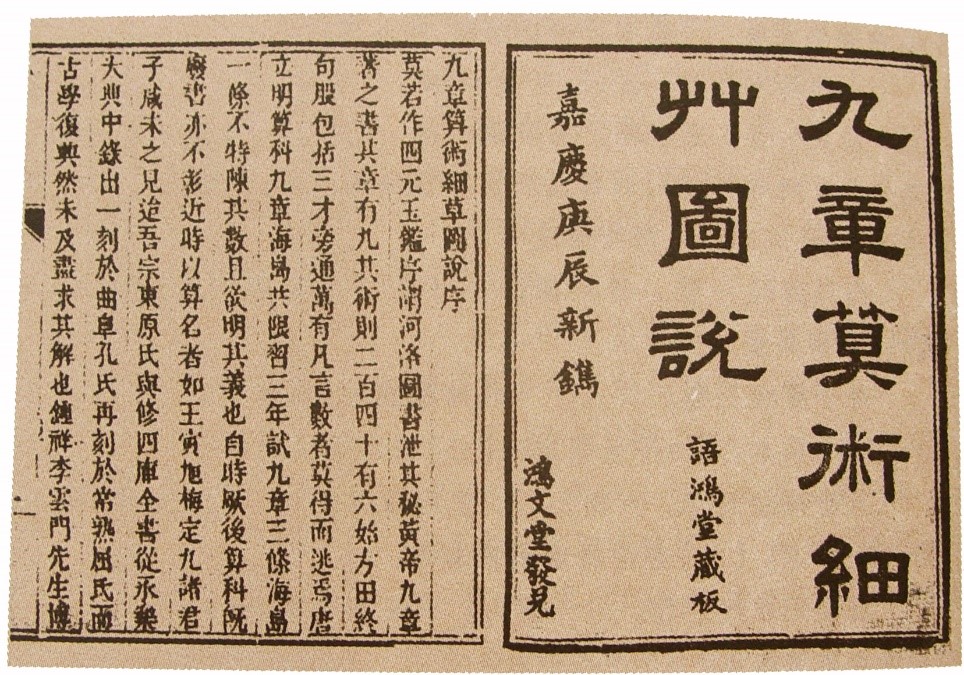 九章算術細
艸圖說
語鴻堂藏板
嘉慶庚辰新鐫
鴻文堂發兌
九章算術細草圖說序
莫若作四元玉鑑序謂河洛圖書泄其秘黃帝九章
著之書其章有九其術則二百四十有六始方田終
句股包括三才旁通萬有凡言數者莫得而逃焉唐
立明算科九章海島共限習三年試九章三條海島
一條不特陳其數且欲明其義也自時厥後算科旣
廢書亦不彰近時以算名者如王寅旭梅定九諸君
子咸未之見迨吾宗東原氏與修四庫全書從永樂
大典中錄出一刻於曲阜孔氏再刻於常熟屈氏而
古學復興然未及盡求其解也鍾祥李雲門先生博